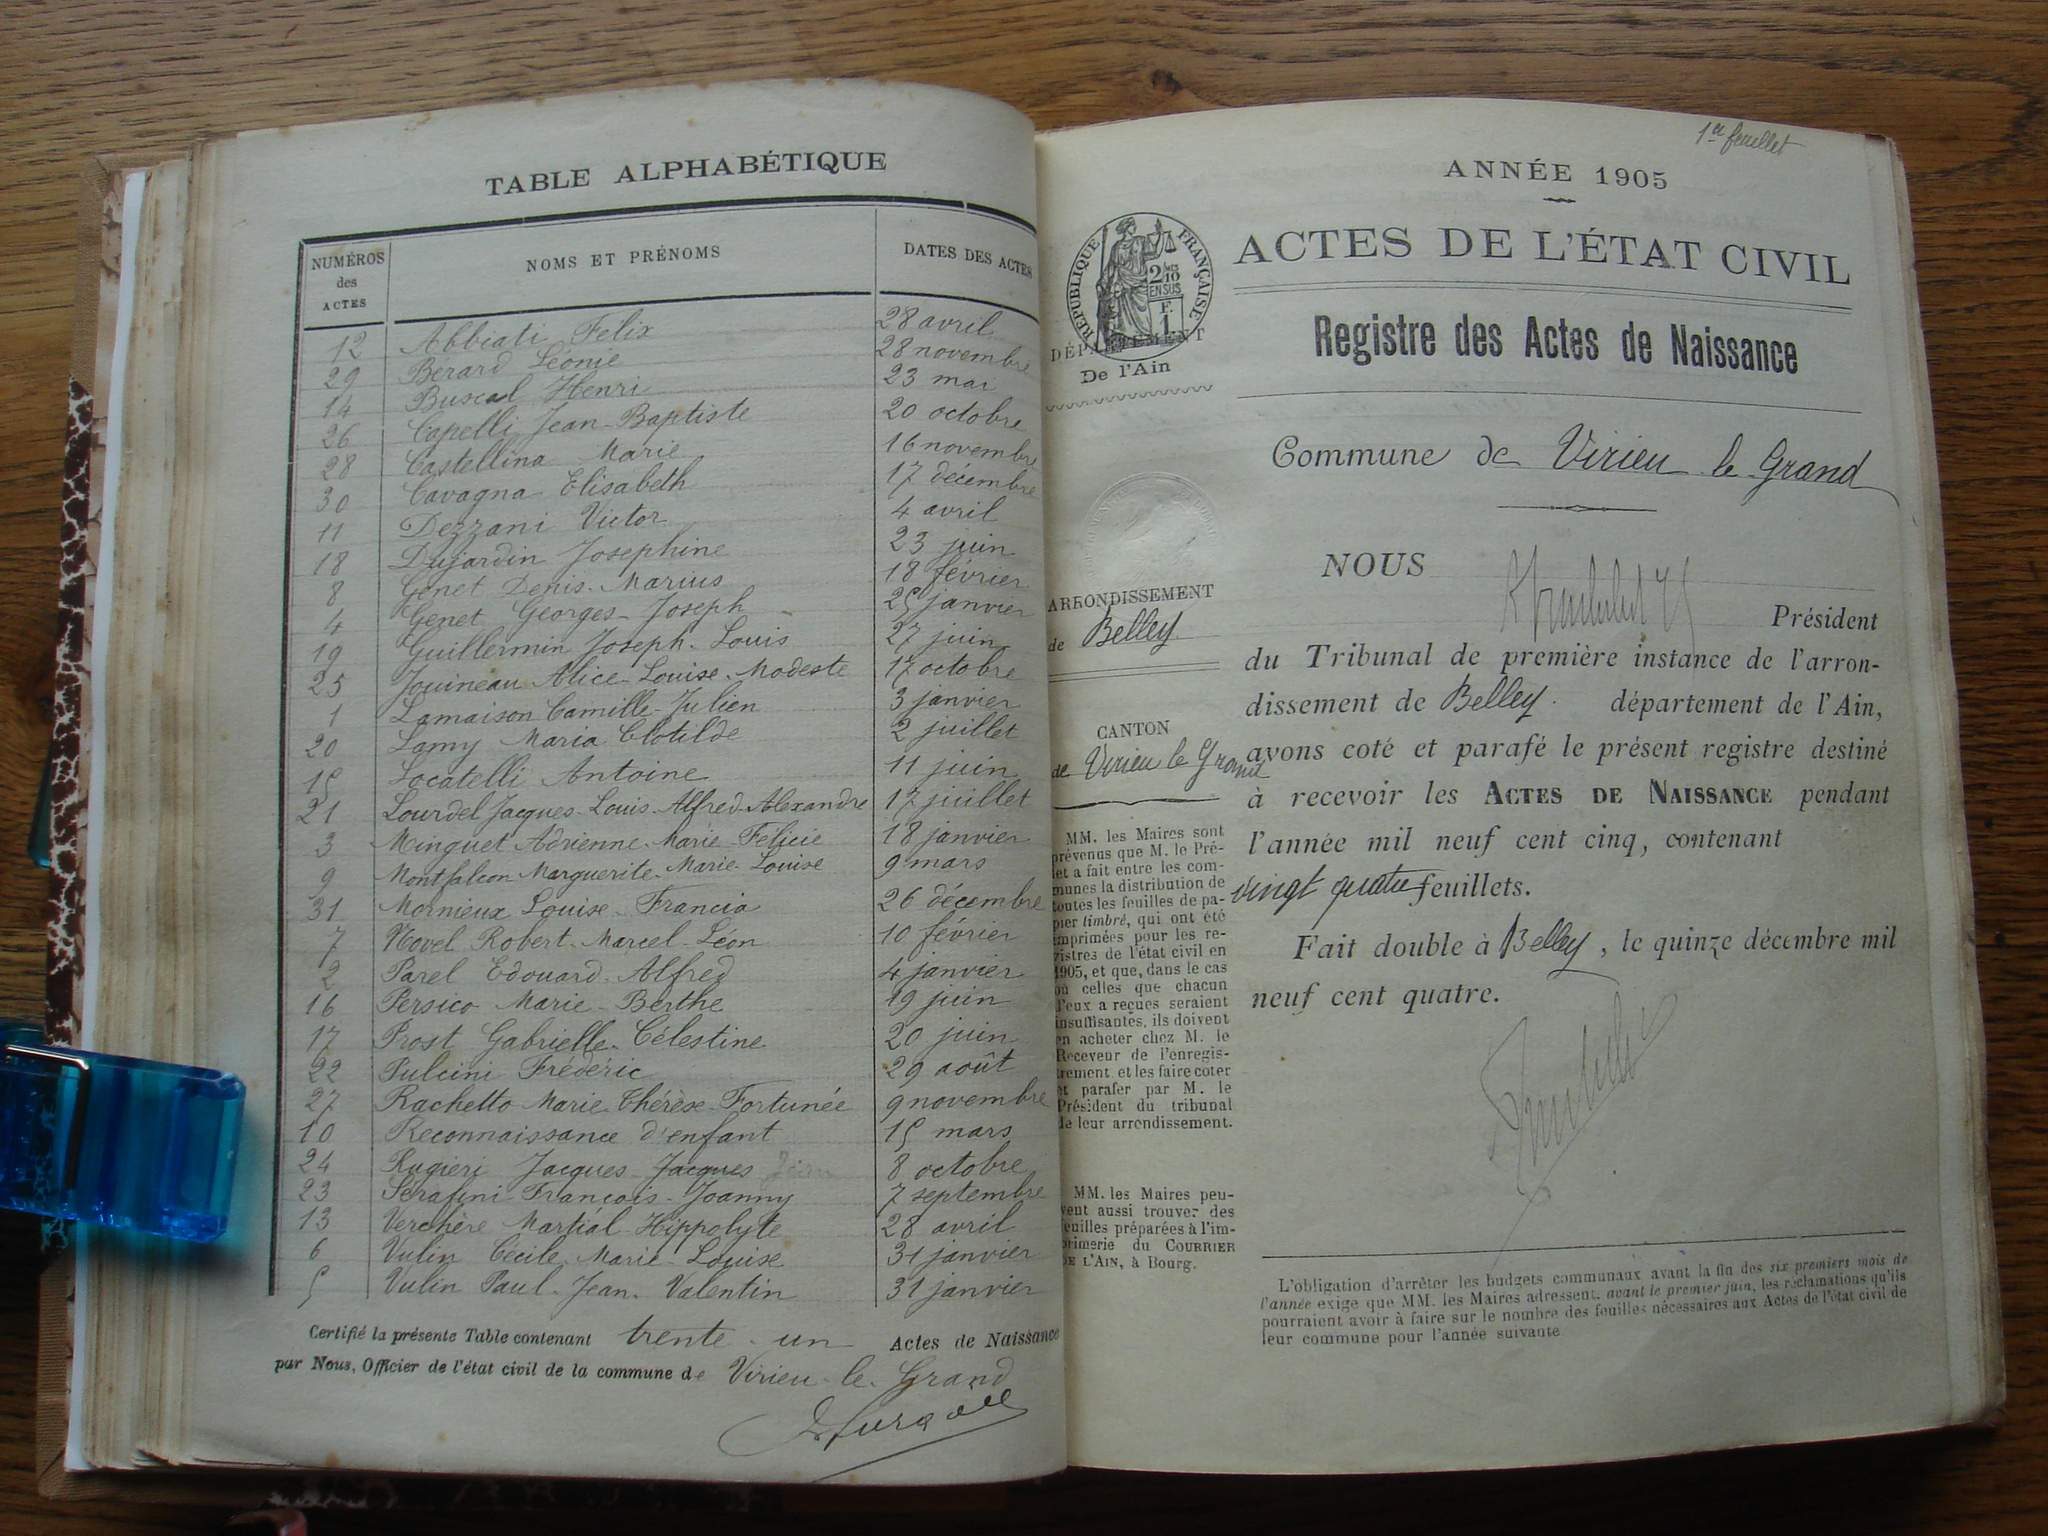 TABLE ALPHABÉTIQUE
NUMÉROS des ACTES NOMS ET PRÉNOMS DATES DES ACTES
12 Abbiati Félix 28 avril
29 Bérard Léonie 28 novembre
14 Buscal Henri 23 mai
26 Capelli Jean-Baptiste 20 octobre
28 Castellina Marie 16 novembre
30 Cavagna Elisabeth 17 décembre
11 Dezzani Victor 4 avril
18 Dujardin Josephine 23 juin
8 Genet Denis-Marius 18 février
4 Genet Georges-Joseph 25 janvier
19 Guillermin Joseph-Louis 27 juin
25 Jouineau Alice-Louise-Modeste 17 octobre
1 Lamaison Camille-Julien 3 janvier
20 Lamy Maria Clotilde 2 juillet
15 Locatelli Antoine 11 juin
21 Lourdel Jacques-Louis-Alfred-Alexandre 17 juillet
3 Minguet Adrienne-Marie-Félicie 18 janvier
9 Montfalcon Marguerite-Marie-Louise 9 mars
31 Mornieux Louise-Francia 26 décembre
7 Novel Robert-Marcel-Léon 10 février
2 Parel Edouard-Alfred 4 janvier
16 Persico Marie-Berthe 19 juin
17 Prost Gabrielle-Célestine 20 juin
22 Pulcini Frédéric 29 août
27 Rachetto Marie-Thérèse-Fortunée 9 novembre
10 Reconnaissance d'enfant 15 mars
24 Rugieri Jacques-Jacques Jean 8 octobre
23 Serafini François-Joanny 7 septembre
13 Verchère Martial-Hippolyte 28 avril
6 Vulin Cécile-Marie-Louise 31 janvier
5 Vulin Paul-Jean-Valentin 31 janvier
Certifié la présente Table contenant trente-un Actes de Naissance
par Nous, Officier de l'état civil de la commune de Virieu-le-Grand
1er feuillet
ANNÉE 1905
RÉPUBLIQUE FRANÇAISE
2/10 EN SUS
F. 1
DÉPARTEMENT
De l'Ain
ACTES DE L'ÉTAT CIVIL
Registre des Actes de Naissance
Commune de Virieu le Grand
ARRONDISSEMENT
de Belley
CANTON
de Virieu le Grand
MM. les Maires sont
prévenus que M. le Pré-
fet a fait entre les com-
munes la distribution de
toutes les feuilles de pa-
pier timbré, qui ont été
imprimées pour les re-
gistres de l'état civil en
1905, et que, dans le cas
où celles que chacun
d'eux a reçues seraient
insuffisantes, ils doivent
en acheter chez M. le
Receveur de l'enregis-
trement et les faire coter
et parafer par M. le
Président du tribunal
de leur arrondissement.
MM. les Maires peu-
vent aussi trouver des
feuilles préparées à l'im-
primerie du COURRIER
DE L'AIN, à Bourg.
NOUS
Président
du Tribunal de première instance de l'arron-
dissement de Belley. département de l'Ain,
avons coté et parafé le présent registre destiné
à recevoir les ACTES DE NAISSANCE pendant
l'année mil neuf cent cinq, contenant
vingt quatre feuillets.
Fait double à Belley, le quinze décembre mil
neuf cent quatre.
L'obligation d'arrêter les budgets communaux avant la fin des six premiers mois de
l'année exige que MM. les Maires adressent, avant le premier juin, les réclamations qu'ils
pourraient avoir à faire sur le nombre des feuilles nécessaires aux Actes de l'état civil de
leur commune pour l'année suivante